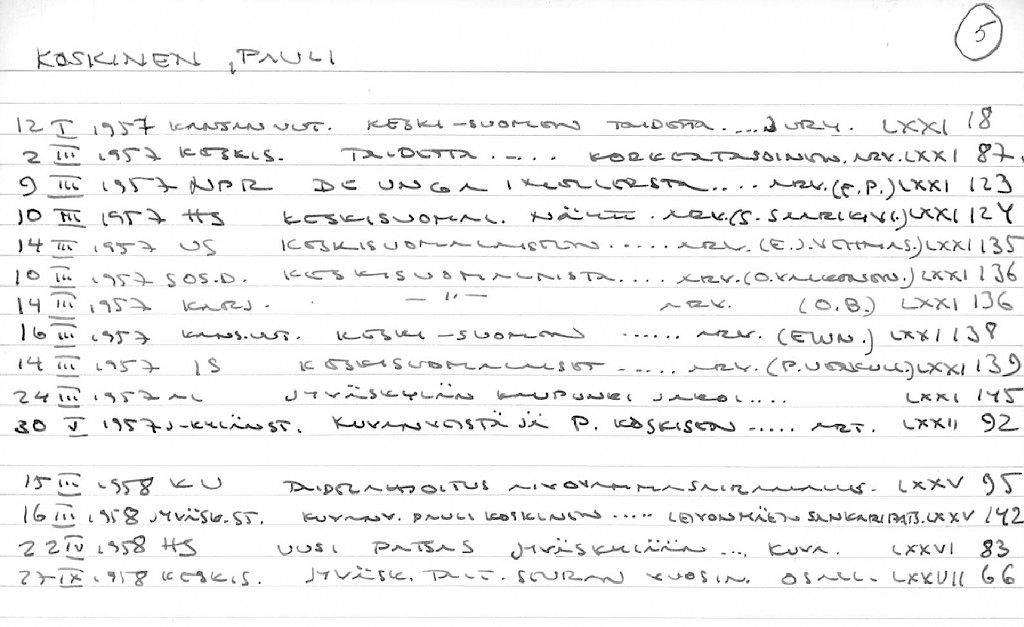 5
KOSKINEN, PAULI
12 I 1957 KANSAN UUT. KESKI-SUOMEN TAIDETTA .... JURY. LXXI 18
2 III 1957 KESKIS. TAIDETTA ..... KORKEATASOINEN. ARV. LXXI 87
9 III 1957 NPR DE UNGA I .... ARV. (E.P.) LXXI 123
10 III 1957 HS KESKISUOMAL. NÄYTT. ARV. (S. SAARIKIVI.) LXXI 124
14 III 1957 US KESKISUOMALAISTEN ..... ARV. (E.J. VEHMAS.) LXXI 135
10 III 1957 SOS.D. KESKISUOMALAISTA .... ARV. (O. VALKONEN.) LXXI 136
14 III 1957 KARJ. -"- ARV. (O.B.) LXXI 136
16 III 1957 KANS.UUT. KESKI-SUOMEN ...... ARV. (EWN.) LXXI 138
14 III 1957 IS KESKISUOMALAISET ..... ARV. (P. VERKULL.) LXXI 139
24 III 1957 AL JYVÄSKYLÄN KAUPUNKI JAKOI .... LXXI 145
30 V 1957 J-KYLÄN ST. KUVANVEISTÄJÄ P. KOSKISEN ..... ART. LXXII 92
15 III 1958 KU TAIDELAHJOITUS AIVOVAMMASAIRAALLE. LXXV 95
16 III 1958 JYVÄSK. ST. KUVANV. PAULI KOSKINEN ..... LEIVONMÄEN SANKARIPATS. LXXV 142
22 IV 1958 HS UUSI PATSAS JYVÄSKYLÄÄN ... KUVA. LXXVI 83
27 IX 1958 KESKIS. JYVÄSK. TAIT. SEURAN VUOSIN. OSALL. LXXVII 66